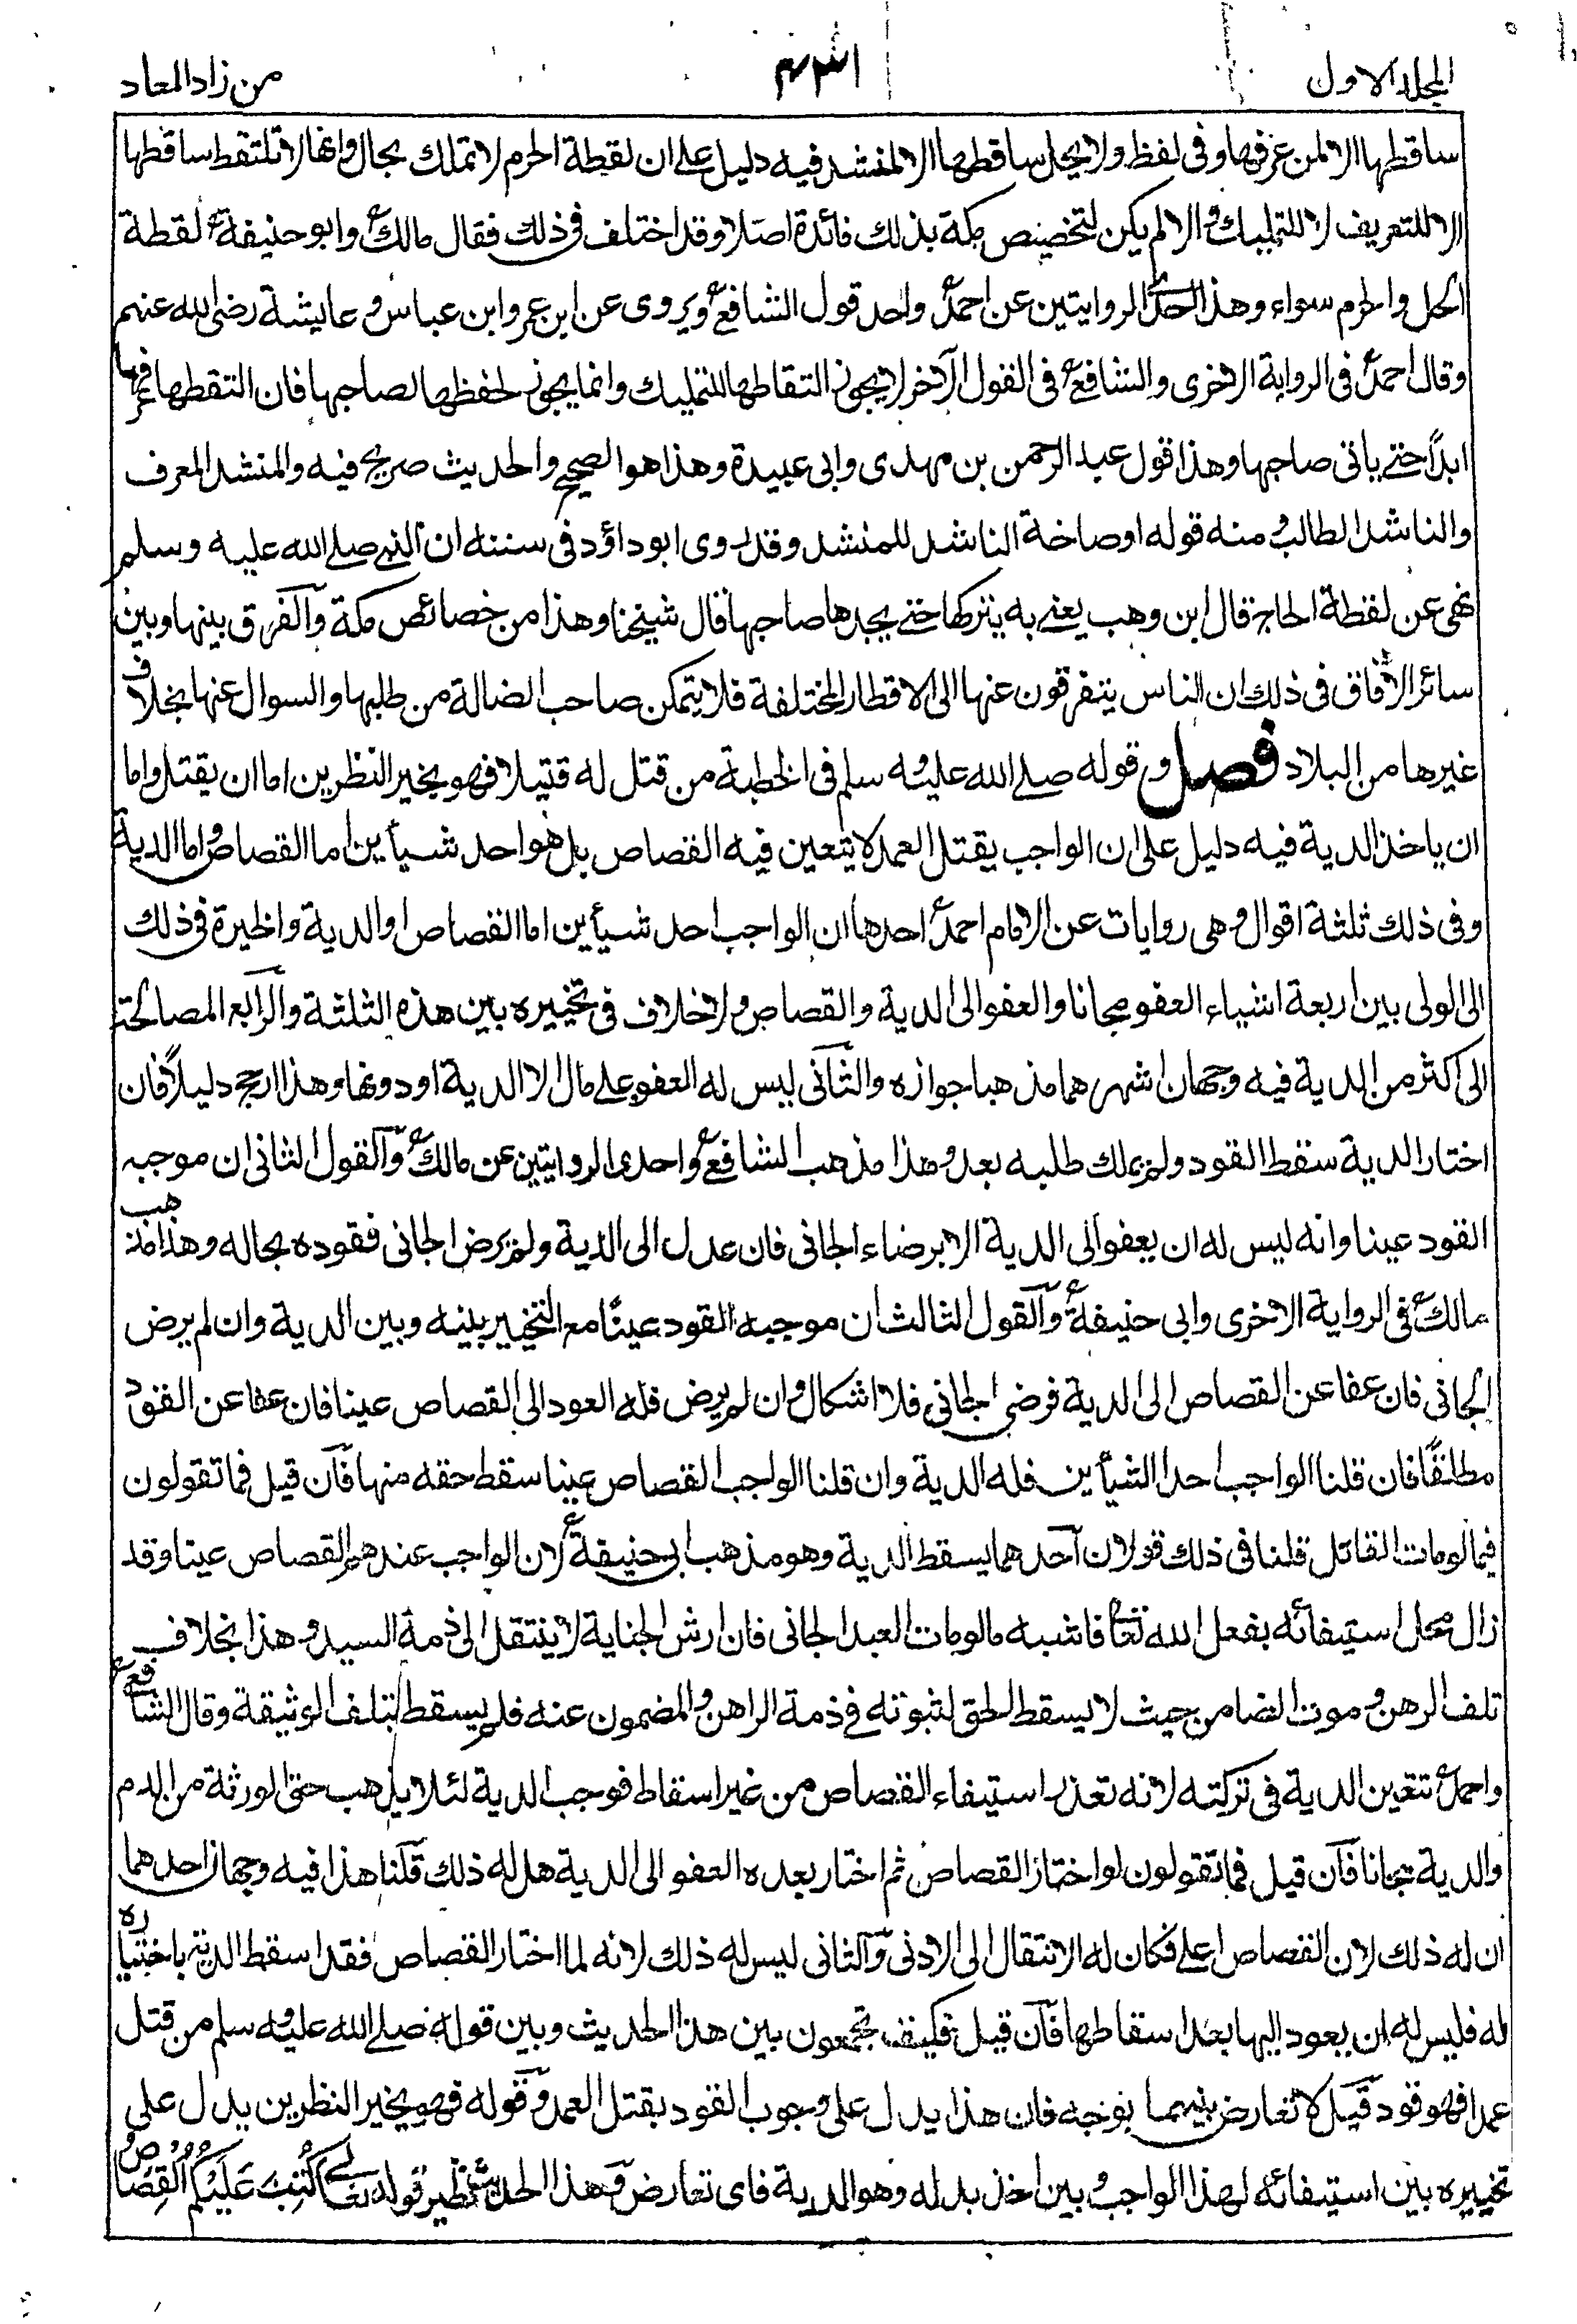 المجلد الاول
من زاد المعاد
ساقطها الا لمن عرفها وفى لفظ ولا يحل ساقطها الا لمنشد فيه دليل على ان لقطة الحرم لا تملك بحال وانها لا تلتقط ساقطها
الا للتعريف لا للتمليك والا لم يكن لتخصيص مكة بذلك فائدة اصلا وقد اختلف فى ذلك فقال مالك وابو حنيفة لقطة
الحل والحرم سواء وهذا احد الروايتين عن احمد واحد قول الشافع ويروى عن ابن عمر وابن عباس وعايشة رضى الله عنهم
وقال احمد فى الرواية الاخرى والشافع فى القول الآخر لا يجوز التقاطها للتمليك وانما يجوز لحفظها لصاحبها فان التقطها عرفها
ابدًا حتے ياتى صاحبها وهذا قول عبد الرحمن بن مهدى وابى عبيدة وهذا هو الصحيح والحديث صريح فيه والمنشد المعرف
والناشد الطالب ومنه قوله اصاخة الناشد للمنشد وقد روى ابو داؤد فى سننه ان النبے صلے الله عليه وسلم
نهى عن لقطة الحاج قال ابن وهب يعنے به يتركها حتے يجدها صاحبها قال شيخنا وهذا من خصائص مكة والفرق بينها وبين
سائر الآفاق فى ذلك ان الناس يتفرقون عنها الى الاقطار المختلفة فلا يتمكن صاحب الضالة من طلبها والسوال عنها بخلاف
غيرها من البلاد فصل وقوله صلے الله عليه وسلم فى الخطبة من قتل له قتيلا فهو بخير النظرين اما ان يقتل واما
ان ياخذ الدية فيه دليل على ان الواجب يقتل العمد لا يتعين فيه القصاص بل هو احد شيأين اما القصاص واما الدية
وفى ذلك ثلثة اقوال وهى روايات عن الامام احمد احدها ان الواجب احد شيأين اما القصاص او الدية والخيرة فى ذلك
الى الولى بين اربعة اشياء العفو مجانا والعفو الى الدية والقصاص ولا خلاف فى تخييره بين هذه الثلثة والرابع المصالحة
الى اكثر من الدية فيه وجهان اشهرهما مذهبا جوازه والثانى ليس له العفو على مال الا الدية او دونها وهذا ارجح دليلًا فان
اختار الدية سقط القود ولم يملك طلبه بعد وهذا مذهب الشافع واحدى الروايتين عن مالك والقول الثانى ان موجبه
القود عينا وانه ليس له ان يعفو الى الدية الا برضاء الجانى فان عدل الى الدية ولم يرض الجانى فقوده بحاله وهذا مذهب
مالك فى الرواية الاخرى وابى حنيفة والقول الثالث ان موجبه القود عينًا مع التخيير بينه وبين الدية وان لم يرض
الجانى فان عفا عن القصاص الى الدية فرضى الجانى فلا اشكال وان لم يرض فله العود الى القصاص عينا فان عفا عن القود
مطلقًا فان قلنا الواجب احد الشيأين فله الدية وان قلنا الواجب القصاص عينا سقط حقه منها فان قيل فما تقولون
فيما لو مات القاتل قلنا فى ذلك قولان احدهما يسقط الدية وهو مذهب ابى حنيفة لان الواجب عندهم القصاص عينا وقد
زال محل استيفائه بفعل الله تعا فاشبه ما لو مات العبد الجانى فان ارش الجناية لا ينتقل الى ذمة السيد وهذا بخلاف
تلف الرهن وموت الضامن حيث لا يسقط الحق لثبوته فى ذمة الراهن والمضمون عنه فلم يسقط بتلف الوثيقة وقال الشافع
واحمد تتعين الدية فى تركته لانه تعذر استيفاء القصاص من غير اسقاط فوجب الدية لئلا يذهب حق الورثة من الدم
والدية مجانا فان قيل فما تقولون لو اختار القصاص ثم اختار بعده العفو الى الدية هل له ذلك قلنا هذا فيه وجهان احدهما
ان له ذلك لان القصاص اعلى فكان له الانتقال الى الادنى والثانى ليس له ذلك لانه لما اختار القصاص فقد اسقط الدية باختياره
له فليس له ان يعود اليها بعد اسقاطها فان قيل فكيف تجمعون بين هذا الحديث وبين قوله صلے الله عليه وسلم من قتل
عمدا فهو قود قيل لا تعارض بينهما بوجه فان هذا يدل على وجوب القود بقتل العمد وقوله فهو بخير النظرين يدل على
تخييره بين استيفائه لهذا الواجب وبين اخذ بدله وهو الدية فاى تعارض وهذا الحديث نظير قوله تعالے كُتِبَ عَلَيْكُمُ الْقِصَاصُ